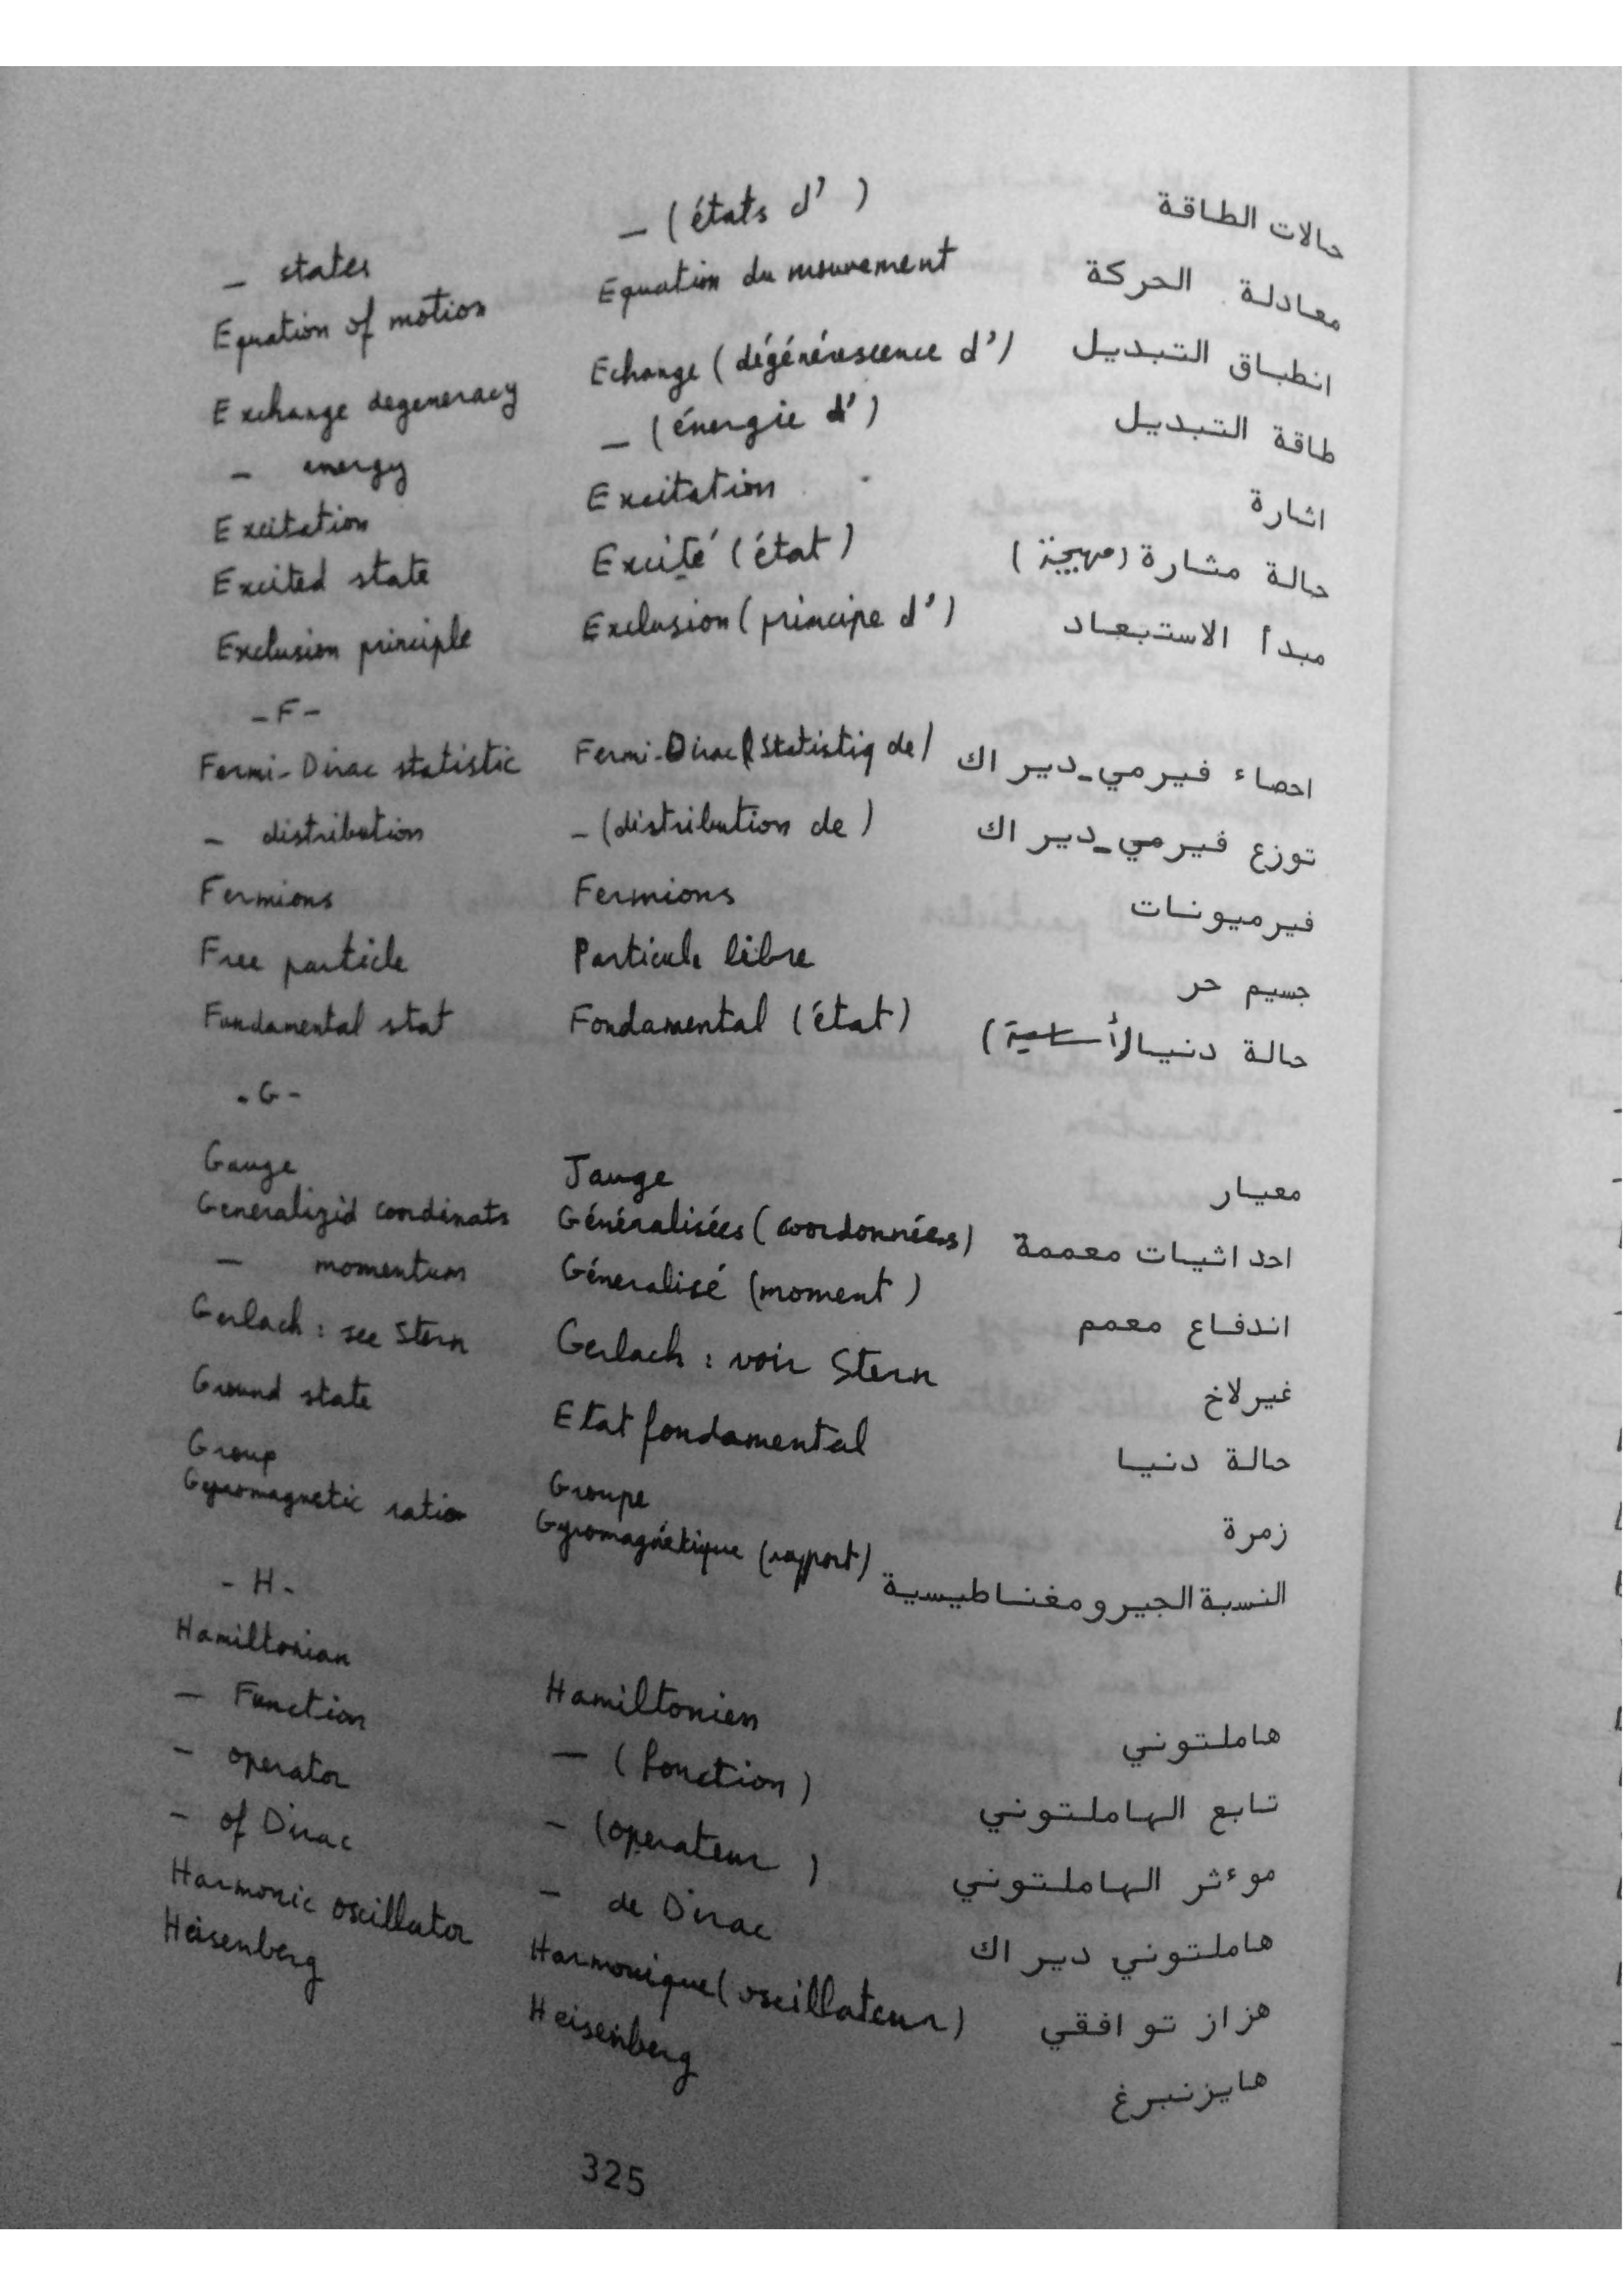 – states – (états d' ) حالات الطاقة
Equation of motion Equation du mouvement معادلة الحركة
Exchange degeneracy Echange (dégénérescence d') انطباق التبديل
– energy – (énergie d') طاقة التبديل
Excitation Excitation اشارة
Excited state Excité (état) حالة مشارة (مهيجة)
Exclusion principle Exclusion (principe d') مبدأ الاستبعاد
– F –
Fermi-Dirac statistic Fermi-Dirac (Statistiq de) احصاء فيرمي_ديراك
– distribution – (distribution de) توزع فيرمي_ديراك
Fermions Fermions فيرميونات
Free particle Particule libre جسيم حر
Fundamental stat Fondamental (état) حالة دنيا (أساسية)
- G -
Gauge Jauge معيار
Generalizid coordinats Généralisées (coordonnées) احداثيات معممة
– momentum Géneralisé (moment) اندفاع معمم
Gerlach : see Stern Gerlach : voir Stern غيرلاخ
Ground state Etat fondamental حالة دنيا
Group Groupe زمرة
Gyromagnetic ration Gyromagnétique (rapport) النسبة الجيرومغناطيسية
- H -
Hamiltonian Hamiltonien هاملتوني
– Function – (fonction) تابع الهاملتوني
– operator – (operateur ) موءثر الهاملتوني
– of Dirac – de Dirac هاملتوني ديراك
Harmonic oscillator Harmonique (oscillateur) هزاز توافقي
Heisenberg Heisenberg هايزنبرغ
325